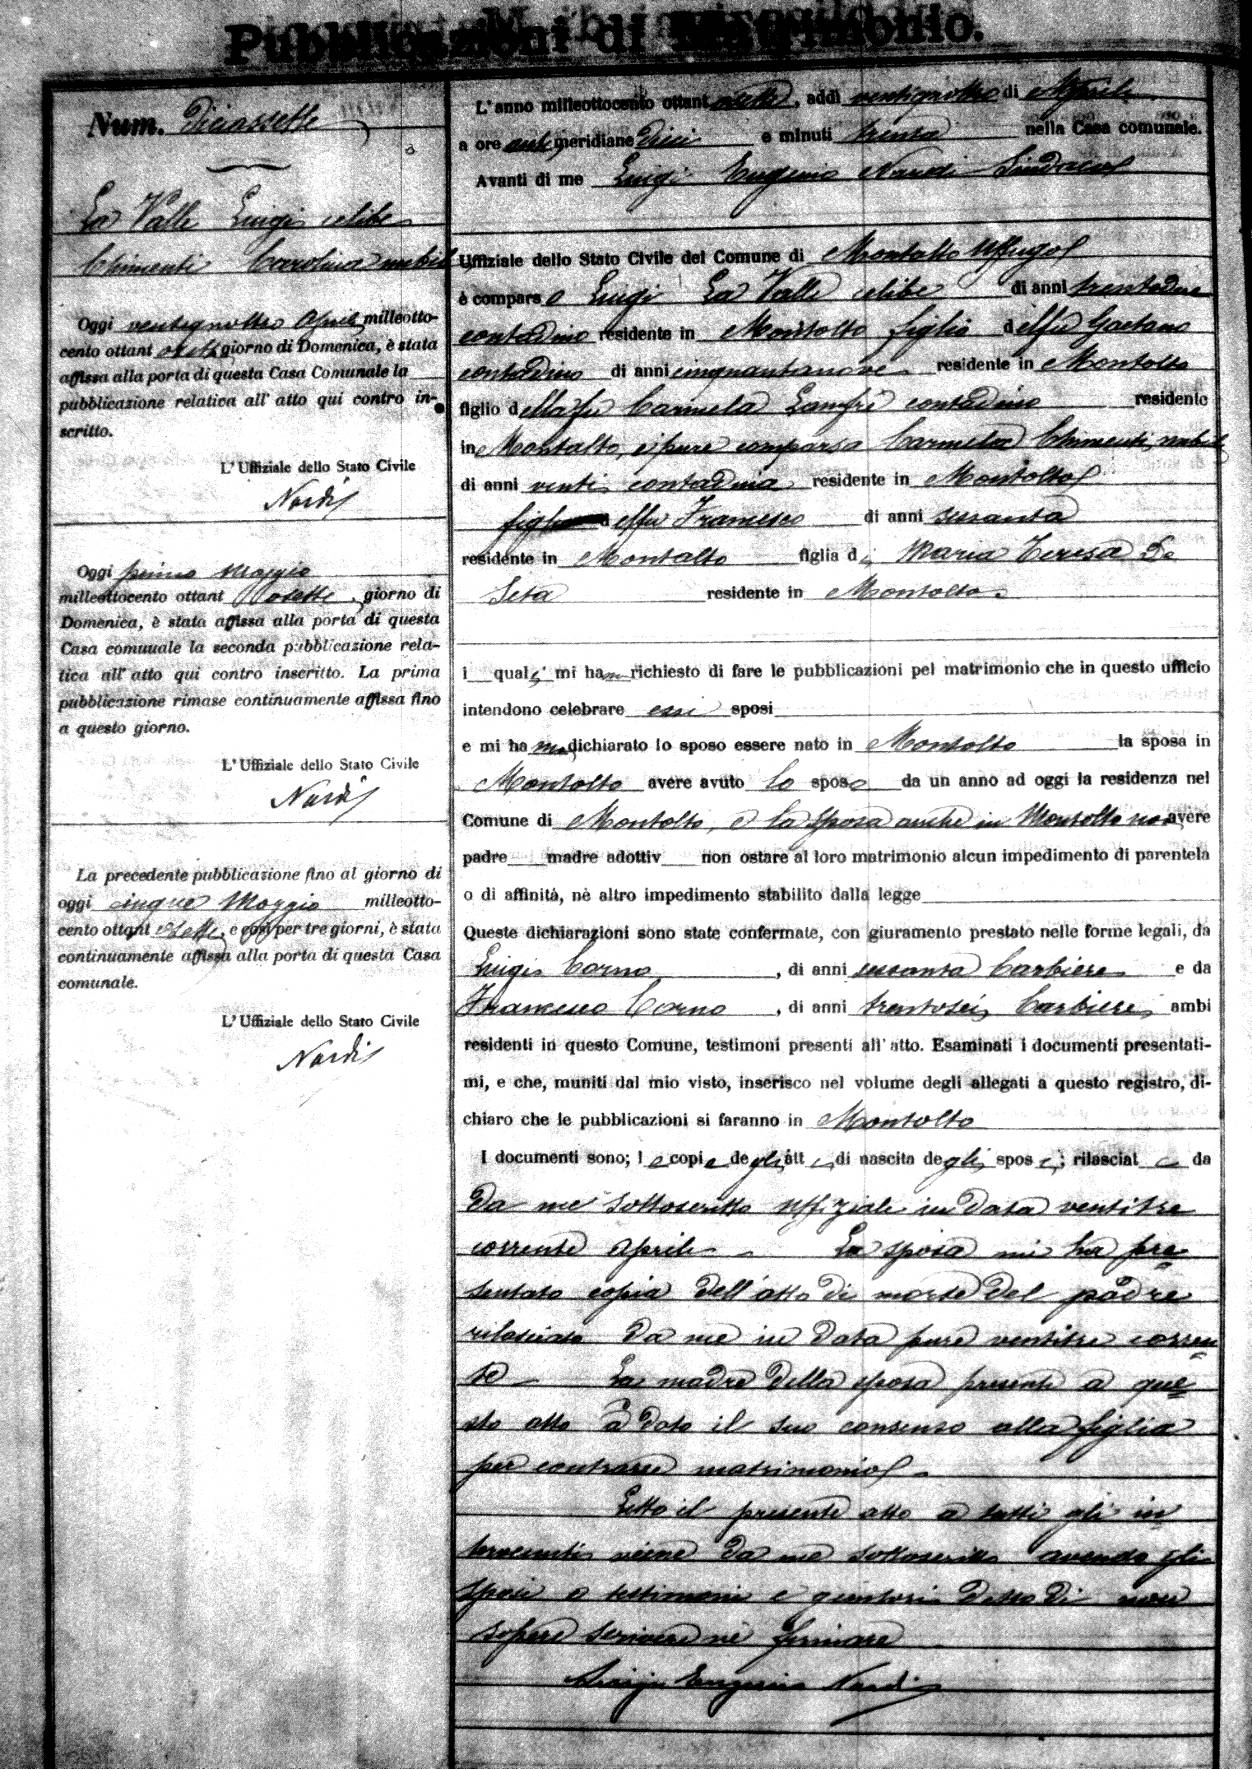 Pubblicazioni di Matrimonio.
Num. Diciassette
La Valle Luigi celibe
Chimenti Carolina nubile
Oggi ventiquattro Aprile milleotto-
cento ottantasette giorno di Domenica, è stata
affissa alla porta di questa Casa Comunale la
pubblicazione relativa all' atto qui contro in-
scritto.
L' Uffiziale dello Stato Civile
Nardi
Oggi primo Maggio
milleottocento ottantasette, giorno di
Domenica, è stata affissa alla porta di questa
Casa comuuale la seconda pubblicazione rela-
tica all' atto qui contro inscritto. La prima
pubblicazione rimase continuamente affissa fino
a questo giorno.
L' Uffiziale dello Stato Civile
Nardi
La precedente pubblicazione fino al giorno di
oggi cinque Maggio milleotto-
cento ottantasette, e così per tre giorni, è stata
continuamente affissa alla porta di questa Casa
comunale.
L' Uffiziale dello Stato Civile
Nardi
L' anno milleottocento ottantasette, addì ventiquattro di Aprile
a ore anti meridiane dieci e minuti trenta nella Casa comunale.
Avanti di me Luigi Eugenio Nardi Sindaco
Uffiziale dello Stato Civile del Comune di Montalto Uffugo
è comparso Luigi La Valle celibe di anni trentadue
contadino residente in Montalto figlio del fu Gaetano
contadino di anni cinquantanove residente in Montalto
figlio della fu Carmela Lanfri contadino residente
in Montalto, è pure comparsa Carmela Chimenti, nubile
di anni venti contadina residente in Montalto
figlia del fu Francesco di anni sessanta
residente in Montalto figlia di Maria Teresa De
Seta residente in Montalto.
i quali mi han richiesto di fare le pubblicazioni pel matrimonio che in questo ufficio
intendono celebrare essi sposi
e mi ha nno dichiarato lo sposo essere nato in Montalto la sposa in
Montalto avere avuto lo sposo da un anno ad oggi la residenza nel
Comune di Montalto, e la sposa anche in Montalto non avere
padre madre adottiv non ostare al loro matrimonio alcun impedimento di parentela
o di affinità, nè altro impedimento stabilito dalla legge
Queste dichiarazioni sono state confermate, con giuramento prestato nelle forme legali, da
Luigi Corno, di anni sessanta barbiere e da
Francesco Corno, di anni trentasei, barbiere, ambi
residenti in questo Comune, testimoni presenti all' atto. Esaminati i documenti presentati-
mi, e che, muniti dal mio visto, inserisco nel volume degli allegati a questo registro, di-
chiaro che le pubblicazioni si faranno in Montalto
I documenti sono; le copie degli atti di nascita degli sposi; rilasciate da
da me sottoscritto Uffiziale in data ventitre
corrente Aprile - La sposa mi ha pre
sentato copia dell'atto di morte del padre
rilasciato da me in data pure ventitre corren
te - La madre della sposa presente a que
sto atto à dato il suo consenso alla figlia
per contrarre matrimonio -
Letto il presente atto a tutti gli in
tervenuti viene da me sottoscritto avendo gli
sposi e testimoni e genitori detto di non
sapere scrivere nè firmare
Luigi Eugenio Nardi